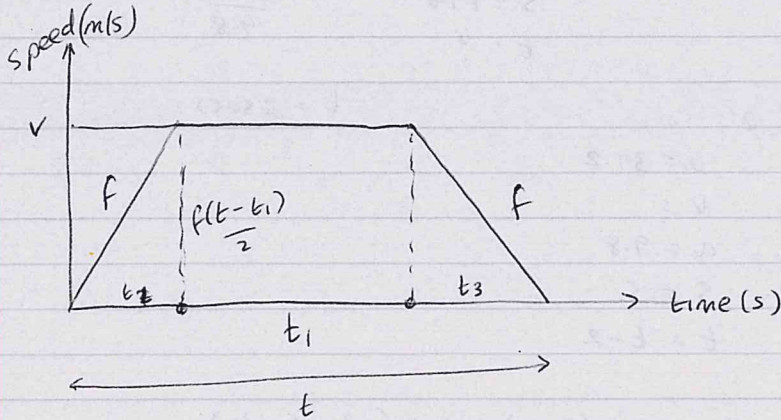 speed (m/s)
v
f
f(t-t₁)/2
f
t₂
t₃
time (s)
t₁
t